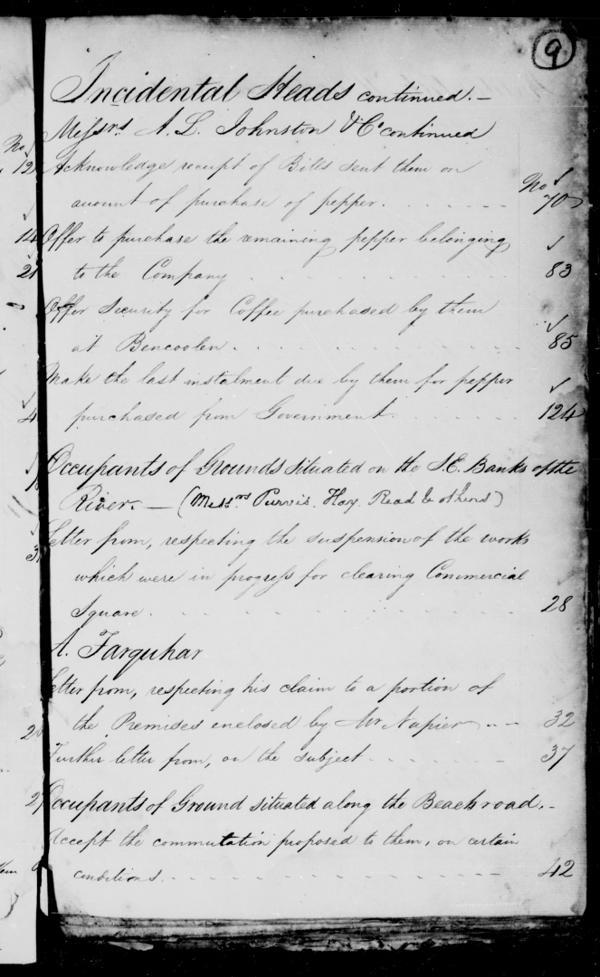 9
Incidental Heads continued. —
Messrs A. L. Johnston & Co continued
Acknowledge receipt of Bills sent them on
No
amount of purchase of pepper. 70
Offer to purchase the remaining pepper belonging
to the Company 83
Offer Security for Coffee purchased by them
at Bencoolen. 85
Make the last instalment due by them for pepper
purchased from Government. 124
Occupants of Grounds situated on the S.E. Banks of the
River. — (Messrs Purvis, Hay, Read & others)
Letter from, respecting the suspension of the works
which were in progress for clearing Commercial
Square. 28
A. Farquhar
Letter from, respecting his claim to a portion of
the Premises enclosed by Mr Napier 32
Further letter from, on the subject 37
Occupants of Ground situated along the Beach road. —
Accept the commutation proposed to them, on certain
conditions. 42